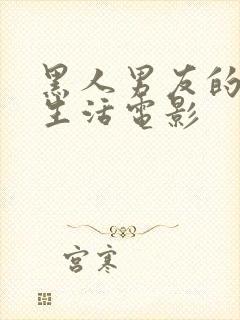 黑人男友的
生活電影
宮寒